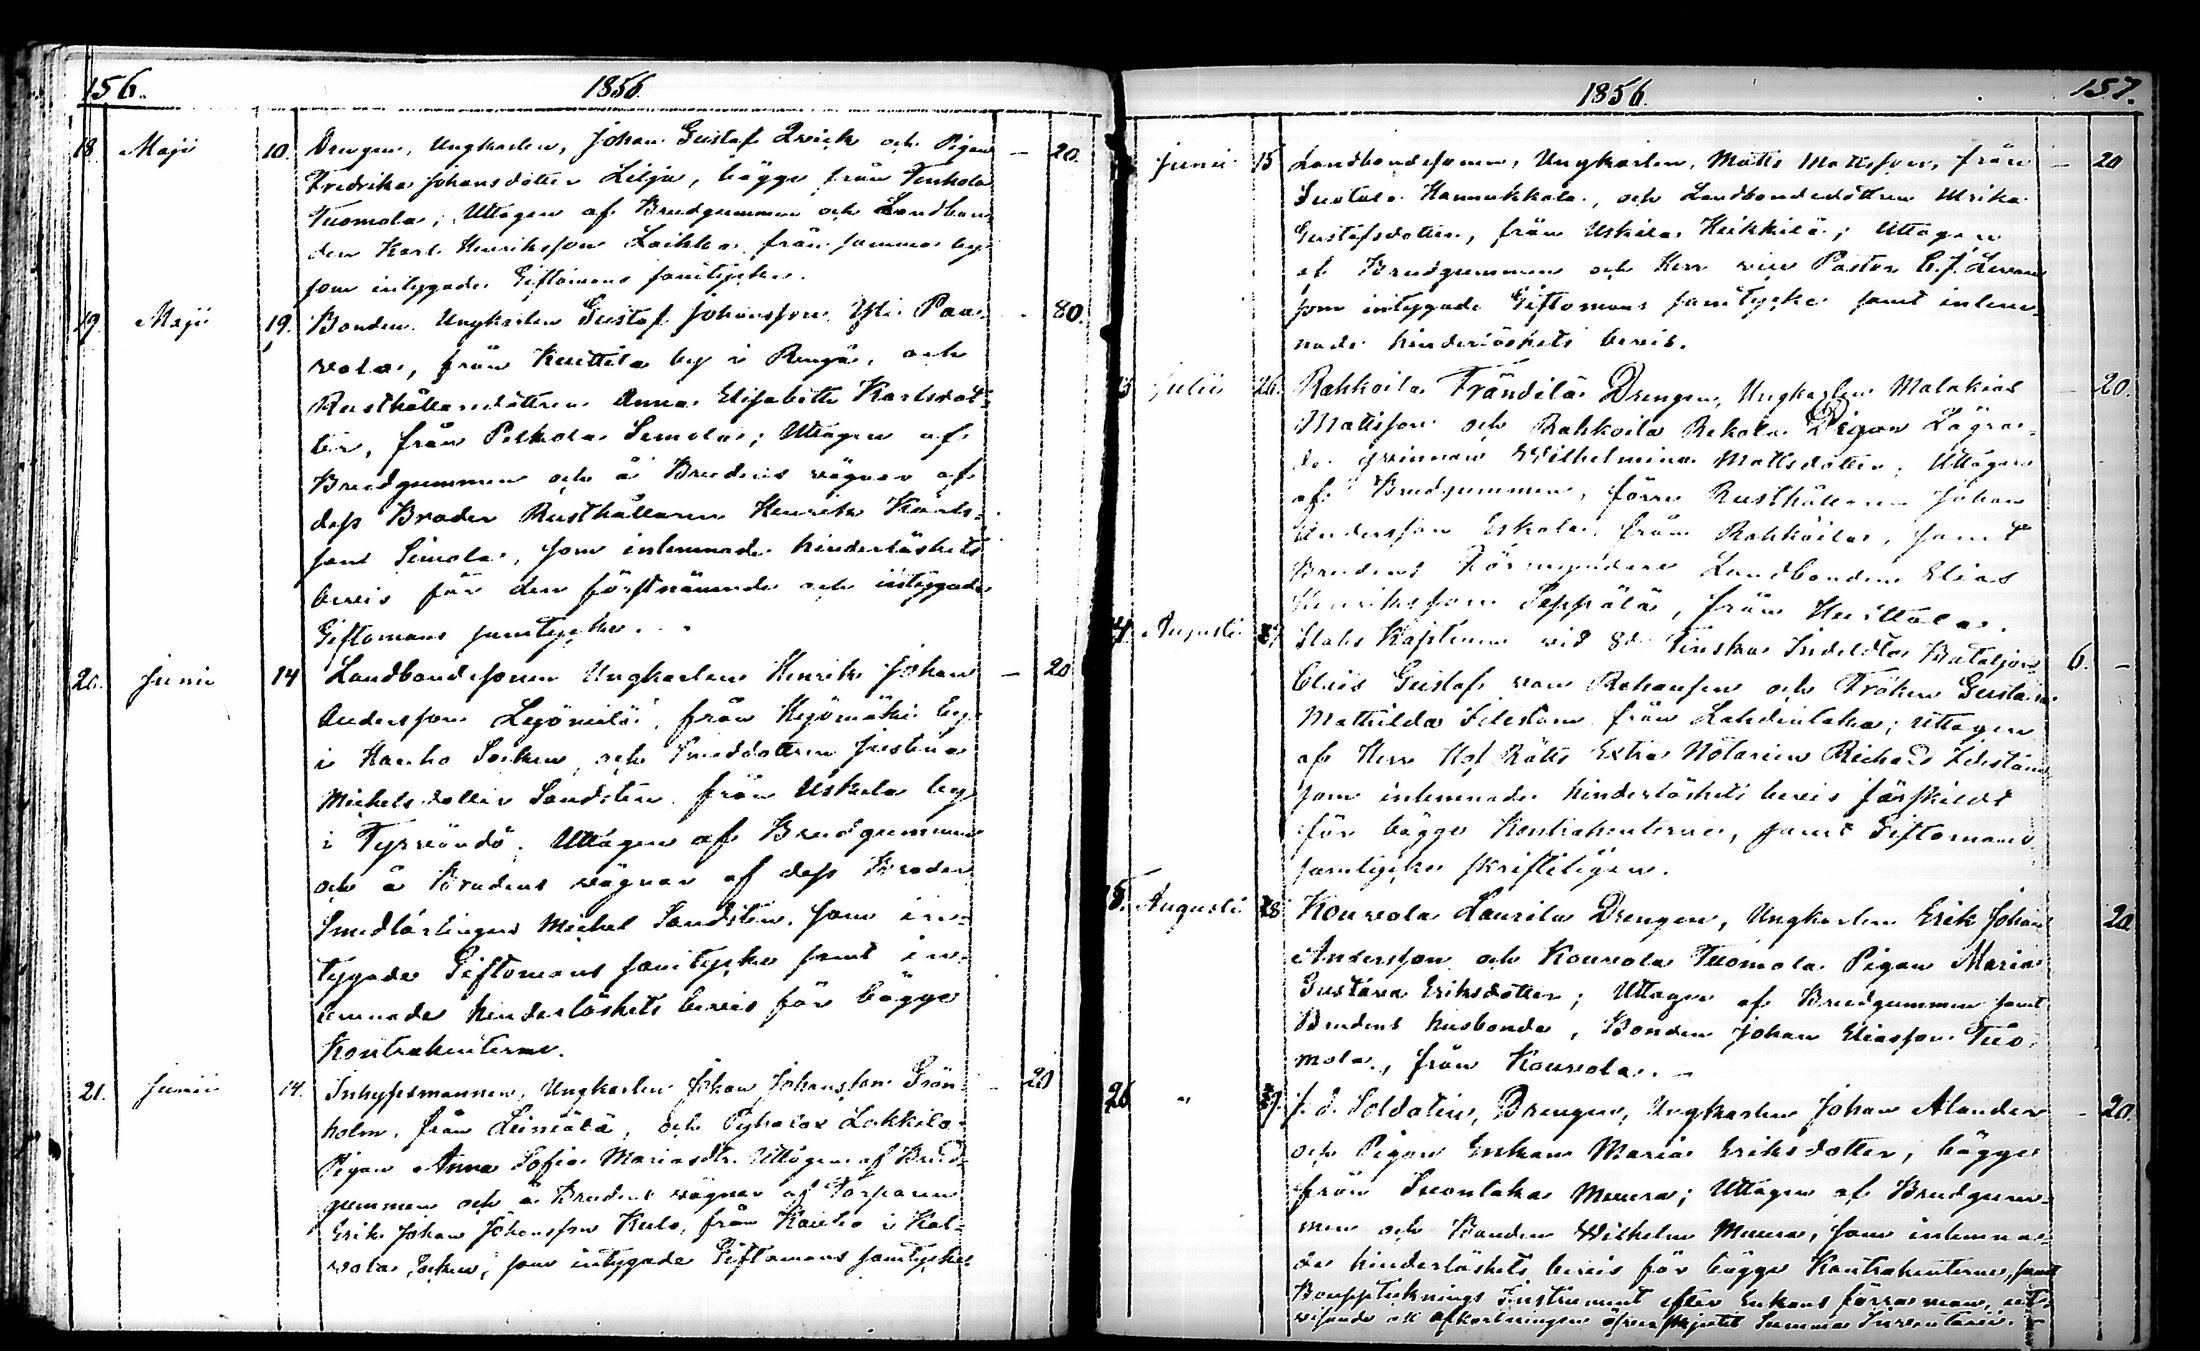 156. 1856.
18 Maji 10. Drengen, Ungkarlen, Johan Gustaf Qvick och Pigan — 20.
Fredrika Johansdotter Lilja, bägge från Tenhola
Tuomola; Uttagen af Brudgummen och Landbon-
den Karl Henriksson Laikka från samma by
som intygade Giftomans samtycke.
19. Maji 19. Bonden, Ungkarlen Gustaf Johansson Yli Paa- - 80.
vola, från Kuittila by i Rengo, och
Rusthållaredottren Anna Elisabeth Karlsdot-
ter, från Pelkola Simola; Uttagen af
Brudgummen och å Brudens vägnar af
dess Broder Rusthållaren Henrik Karls-
son Simola, som inlemnade hinderlöshets
bevis för den förstnämnde och intygade
Giftomans samtycke.
20. Junii 14 Landbondesonen Ungkarlen Henrik Johan — 20
Andersson Lejömilä, från Kejömäki by
i Hauho Socken, och Smeddottren Justina
Michelsdotter Sandsten från Uskela by
i Tyrvändö. Uttagen af Brudgummen
och å Brudens vägnar af dess Broder
Smedlärlingen Michel Sandsten, som in-
tygade Giftomans samtycke samt in-
lemnade hinderlöshets bevis för bägge
Kontrahenterne.
21. Junii 14. Inhysesmannen, Ungkarlen Johan Johansson Grön- — 20
holm, från Leiniälä, och Pyhalax Lakkila
Pigan Anna Sofia Mariasdtr. Uttagen af Brud-
gummen och å Brudens vägnar af Torparen
Erik Johan Johansson Kulo, från Kanho i Kal-
vola Socken, som intygade Giftomans samtycke
1856. 157.
Junii 15 Landbondesonen, Ungkarlen, Matts Mattsson, från — 20
Suotula Hannukkala, och Landbondedottren Ulrika
Gustafsdotter, från Uskila Heikkilä; Uttagen
af Brudgummen och Herr vice Pastor C. J.
som intygade Giftomans samtycke samt inlem-
nade hinderlöshets bevis.
Julii 26. Rahkoila Frändilä Drengen, Ungkarlen Malakias — 20.
Mattsson och Rahkoila Rekola Pigan Lägrade
qvinnan Wilhelmina Mattsdotter. Uttagen
af Brudgummen, förre Rusthållaren Johan
Andersson Eskola, från Rahkoila, samt
Brudens Förmyndare Landbonden Elias
Henriksson Seppälä, från Huittola.
Augusti 27 Stabs Kaptenen vid 8de Finska Indeldta Bataljon 6. —
Claes Gustaf von Rehausen och Fröken Gustava
Mathilda Idestam från Lahdentaka; Uttagen
af Herr Hof Rätts Extra Notarien Richard Idestam
som inlemnade hinderlöshets bevis särskildt
för bägge Kontrahenterne, samt Giftomans
samtycke skriftligen.
5. Augusti 28 Kouvola Laurila Drengen, Ungkarlen Erik Johan 20.
Andersson och Kouvola Tuomola Pigan Maria
Gustava Eriksdotter; Uttagen af Brudgummen samt
Brudens husbonde, Bonden Johan Eliasson Tuo-
mola, från Kouvola. —
26 " 29. f. d. Soldaten, Drengen, Ungkarlen Johan Alander — 20.
och Pigan Enkan Maria Eriksdotter, bägge
från Suontaka Muura; Uttagen af Brudgum-
men och Bonden Wilhelm Muura, som inlemna-
de hinderlöshets bevis för bägge Kontrahenterne, samt
Bouppteknings Instrument efter Enkans förra man, ut-
visande att afkortningen öfverskjutit Summa Inventarii.